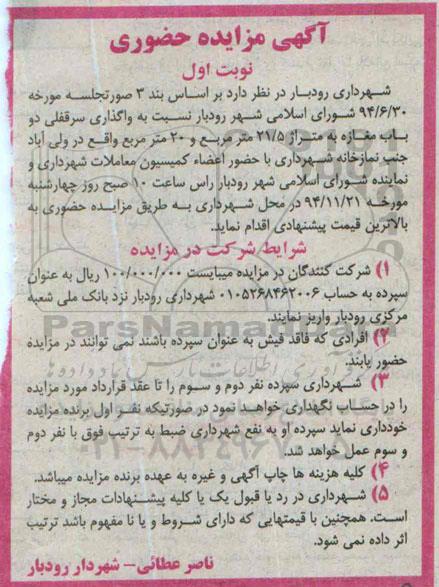 آگهی مزایده حضوری
نوبت اول
شهرداری رودبار در نظر دارد بر اساس بند ۳ صورتجلسه مورخه
۹۴/۶/۳۰ شورای اسلامی شهر رودبار نسبت به واگذاری سرقفلی دو
باب مغازه به متراژ ۲۱/۵ متر مربع و ۲۰ متر مربع واقع در ولی آباد
جنب نمازخانه شهرداری با حضور اعضاء کمیسیون معاملات شهرداری و
نماینده شورای اسلامی شهر رودبار راس ساعت ۱۰ صبح روز چهارشنبه
مورخه ۹۴/۱۱/۲۱ در محل شهرداری به طریق مزایده حضوری به
بالاترین قیمت پیشنهادی اقدام نماید.
شرایط شرکت در مزایده
۱) شرکت کنندگان در مزایده میبایست ۱۰۰/۰۰۰/۰۰۰ ریال به عنوان
سپرده به حساب ۰۱۰۵۲۶۸۴۶۲۰۰۶ شهرداری رودبار نزد بانک ملی شعبه
مرکزی رودبار واریز نمایند.
ParsNamadData
۲) افرادی که فاقد فیش به عنوان سپرده باشند نمی توانند در مزایده
حضور یابند.
۳) شهرداری سپرده نفر دوم و سوم را تا عقد قرارداد مورد مزایده
را در حساب نگهداری خواهد نمود در صورتیکه نفر اول برنده مزایده
خودداری نماید سپرده او به نفع شهرداری ضبط به ترتیب فوق با نفر دوم
و سوم عمل خواهد شد.
۴) کلیه هزینه ها چاپ آگهی و غیره به عهده برنده مزایده میباشد.
۵) شهرداری در رد یا قبول یک یا کلیه پیشنهادات مجاز و مختار
است. همچنین با قیمتهایی که دارای شروط و یا نا مفهوم باشد ترتیب
اثر داده نمی شود.
ناصر عطائی - شهردار رودبار